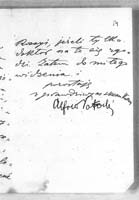 jeżeli tylko
doktor na to się zgo-
dzi. Zatem do miłego
widzenia i
pozostaję
z prawdziwym szacunkiem
Alfred Potocki